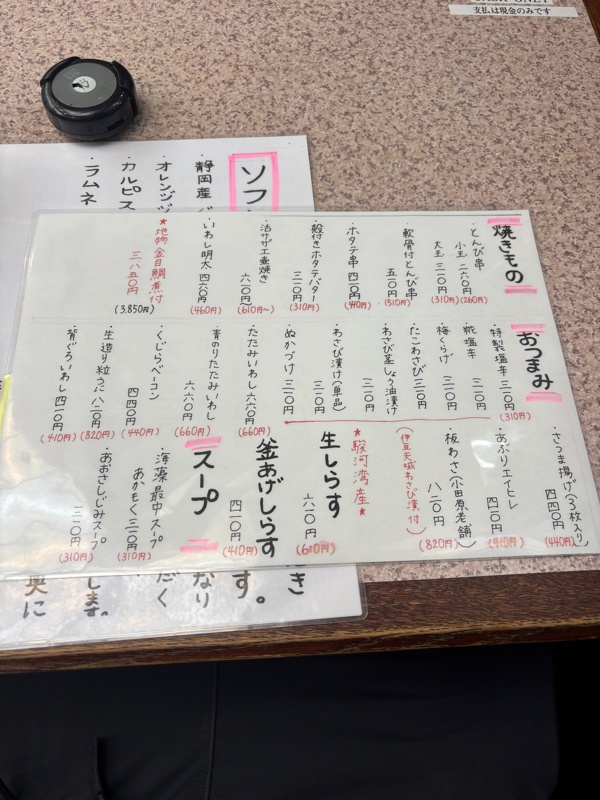 支払は現金のみです
焼きもの
・とんび串
小玉 二六〇円
(260円)
大玉 三一〇円
(310円)
・軟骨付とんび串
五一〇円
(510円)
・ホタテ串 四一〇円
(410円)
・殻付きホタテバター
三一〇円
(310円)
・活サザエ壷焼き
六一〇円〜
(610円〜)
・いわし明太 四六〇円
(460円)
★地物金目鯛煮付
三八五〇円
(3,850円)
おつまみ
・特製塩辛 三一〇円
(310円)
・糀塩辛 三一〇円
・梅くらげ 三一〇円
・たこわさび 三一〇円
・わさび茎しょう油漬け
三一〇円
・わさび漬け(単品)
三一〇円
・ぬかづけ 三一〇円
・たたみいわし 六六〇円
(660円)
・青のりたたみいわし
六六〇円
(660円)
・くじらベーコン
四四〇円
(440円)
・生造り粒うに 八二〇円
(820円)
・背ぐろいわし 四一〇円
(410円)
・さつま揚げ(3枚入り)
四四〇円
(440円)
・あぶりエイヒレ
四一〇円
(410円)
・板わさ(小田原老舗)
八二〇円
(820円)
(伊豆天城わさび漬付)
★駿河湾産★
生しらす
六一〇円
(610円)
釜あげしらす
四一〇円
(410円)
スープ
・海藻最中スープ
あかもく 三一〇円
(310円)
・あおさしじみスープ
三一〇円
(310円)
ソフ
・静岡産
・オレンジジ
・カルピス
・ラムネ
き
す。
なり
だく
します。
奥に